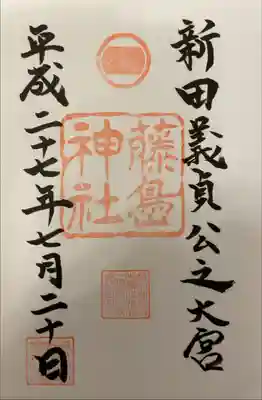 新田義貞公之大宮
藤島
神社
平成二十七年七月二十日